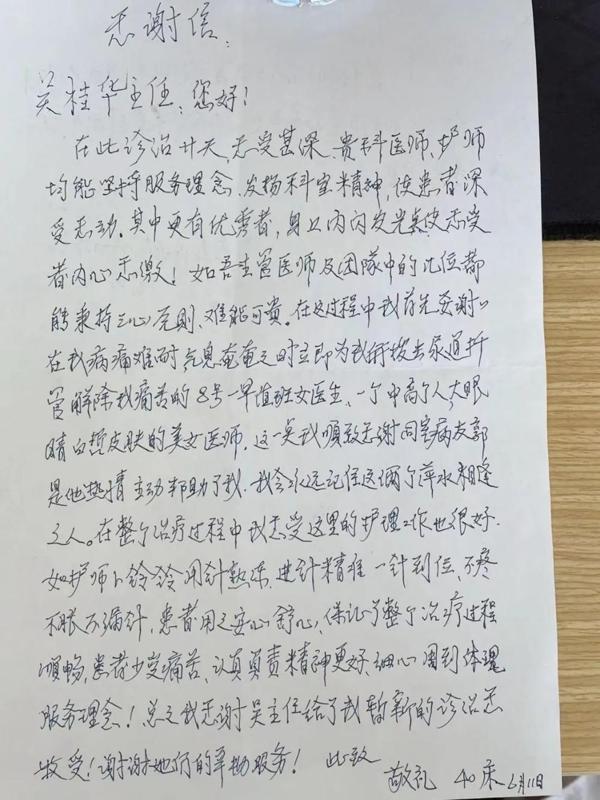 感谢信:
吴桂华主任:您好!
在此诊治廿天感受甚深,贵科医师、护师
均能坚持服务理念,发扬科室精神,使患者深
受感动。其中更有优秀者,身上内闪发光点使感受
者内心感激!如吾主管医师及团队中的几位都
能秉持三心原则、难能可贵。在这过程中我首先要谢
在我病痛难耐气息奄奄之时立即为我拔去尿道折
管解除我痛苦的8号一早值班女医生、一个中高个人大眼
睛白皙皮肤的美女医师,这一点我顺致感谢同室病友郭
是他热情主动帮助了我.我会永远记住这俩个萍水相逢
之人。在整个治疗过程中我感受这里的护理工作也很好.
如护师卜铃铃用针熟练,进针精准一针到位、不疼
不胀不漏针,患者用之安心舒心,保证了整个治疗过程
顺畅,患者少受痛苦、认真负责精神更好,细心周到体现
服务理念!总之我感谢吴主任给了我暂新的诊治感
受!谢谢她们的辛勤服务! 此致
敬礼 40床 6月11日